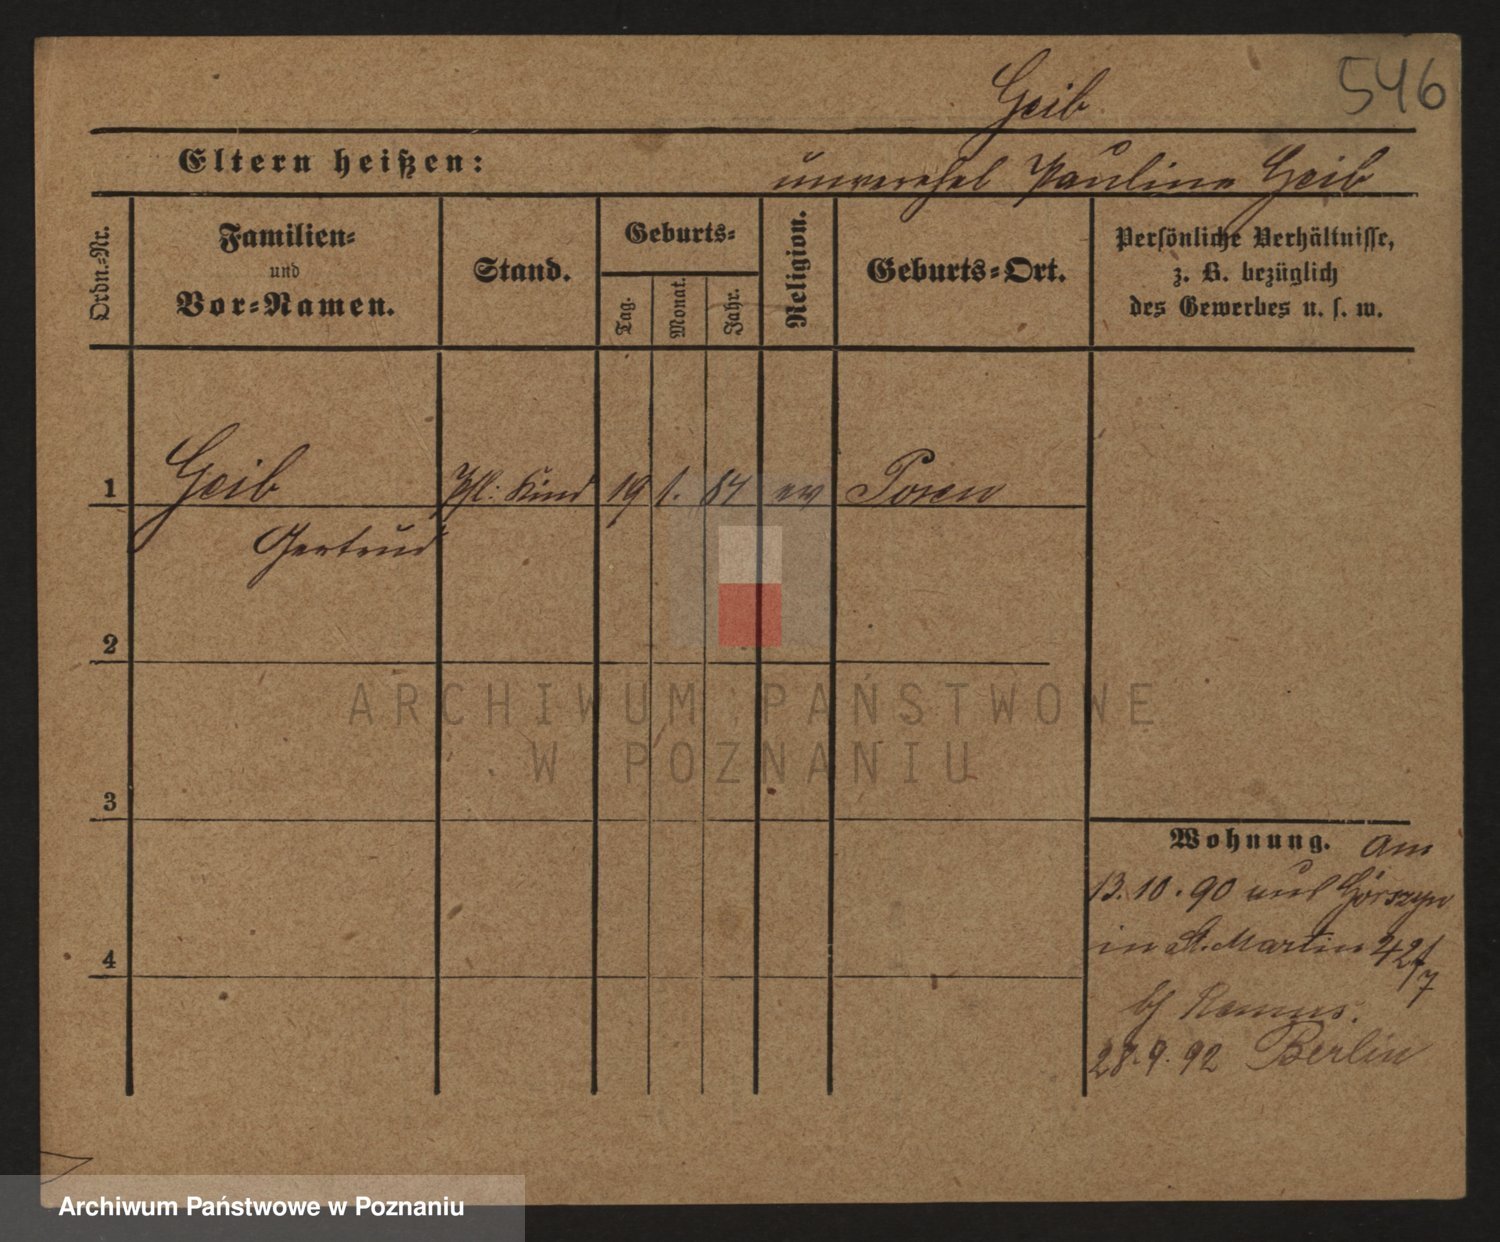 546
Geib
Eltern heißen:
unverehel Pauline Geib
Ordn.-Nr.
Familien-
und
Vor-Namen.
Stand.
Geburts-
Tag.
Monat.
Jahr.
Religion.
Geburts-Ort.
Persönliche Verhältnisse,
z. B. bezüglich
des Gewerbes u. s. w.
1 Geib Pfl: Kind 19 1. 87 ev Posen
Gertrud
2
3
4
Wohnung. Am
13.10.90 aus Górszyn
in St. Martin 42/7
bf
28.9.92 Berlin
ARCHIWUM PAŃSTWOWE
W POZNANIU
Archiwum Państwowe w Poznaniu